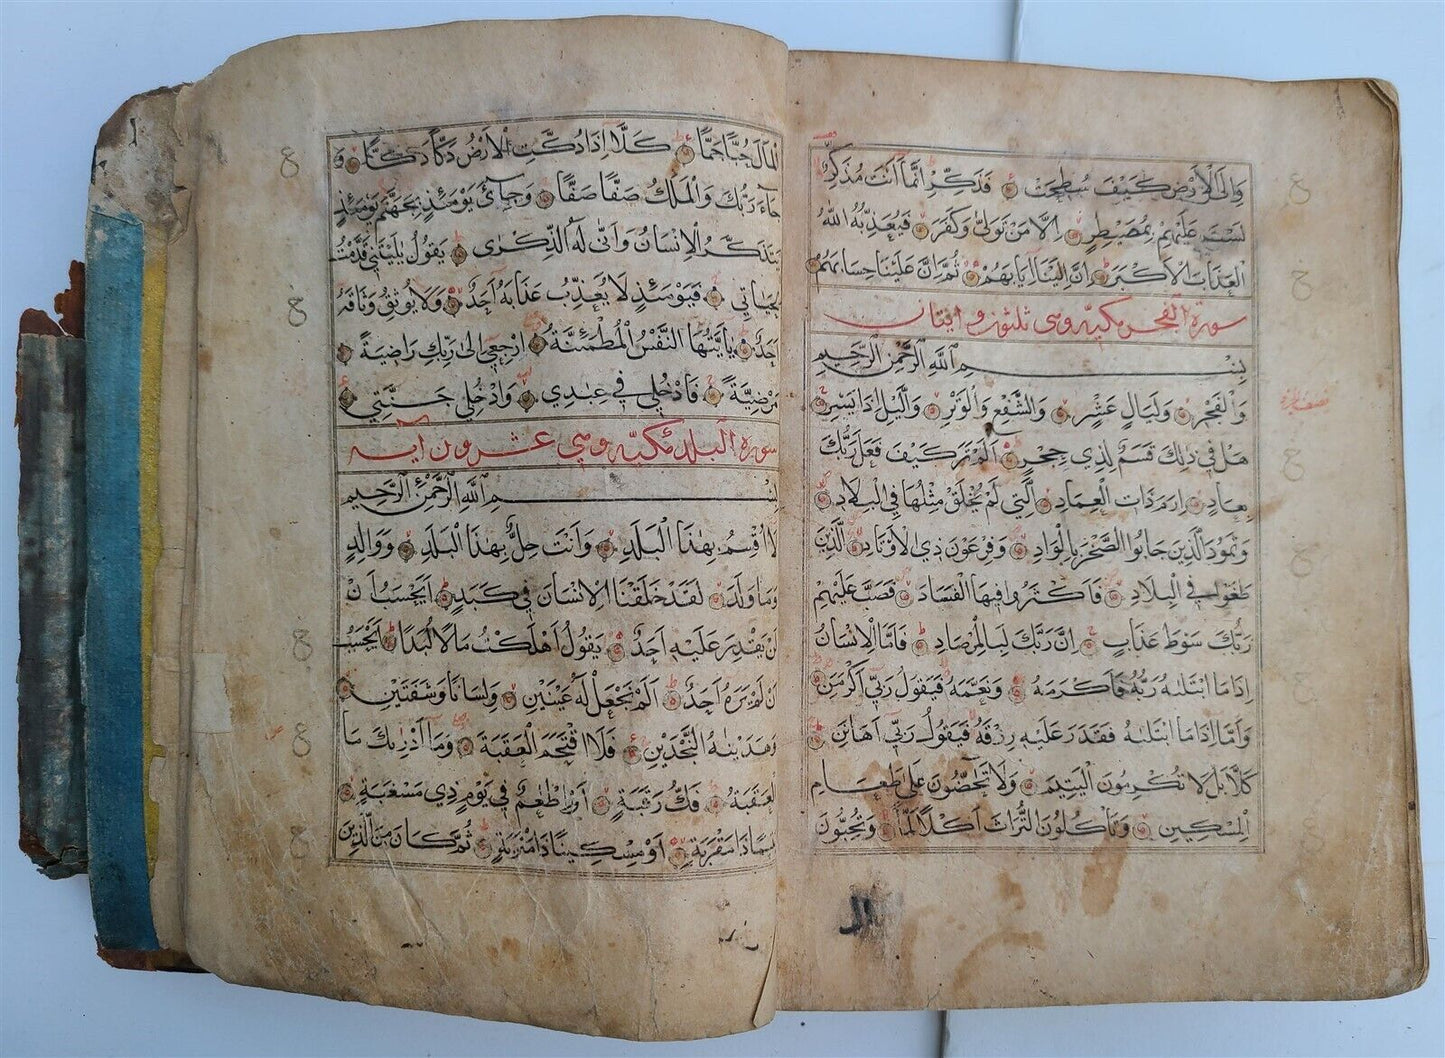 وَاِلَى الْاَرْضِ كَيْفَ سُطِحَتْ فَذَكِّرْ اِنَّمَا اَنْتَ مُذَكِّرٌ
لَسْتَ عَلَيْهِمْ بِمُصَيْطِرٍ اِلَّا مَنْ تَوَلّٰى وَكَفَرَ فَيُعَذِّبُهُ اللهُ
الْعَذَابَ الْاَكْبَرَ اِنَّ اِلَيْنَا اِيَابَهُمْ ثُمَّ اِنَّ عَلَيْنَا حِسَابَهُمْ
سورة الفجر مكية وهي ثلثون وايتان
بِسْمِ اللهِ الرَّحْمٰنِ الرَّحِيمِ
وَالْفَجْرِ وَلَيَالٍ عَشْرٍ وَالشَّفْعِ وَالْوَتْرِ وَالَّيْلِ اِذَا يَسْرِ
هَلْ فِي ذٰلِكَ قَسَمٌ لِذِي حِجْرٍ اَلَمْ تَرَ كَيْفَ فَعَلَ رَبُّكَ
بِعَادٍ اِرَمَ ذَاتِ الْعِمَادِ الَّتِي لَمْ يُخْلَقْ مِثْلُهَا فِي الْبِلَادِ
وَثَمُودَ الَّذِينَ جَابُوا الصَّخْرَ بِالْوَادِ وَفِرْعَوْنَ ذِي الْاَوْتَادِ الَّذِينَ
طَغَوْا فِي الْبِلَادِ فَاَكْثَرُوا فِيهَا الْفَسَادَ فَصَبَّ عَلَيْهِمْ
رَبُّكَ سَوْطَ عَذَابٍ اِنَّ رَبَّكَ لَبِالْمِرْصَادِ فَاَمَّا الْاِنْسَانُ
اِذَا مَا ابْتَلٰىهُ رَبُّهُ فَاَكْرَمَهُ وَنَعَّمَهُ فَيَقُولُ رَبِّي اَكْرَمَنِ
وَاَمَّا اِذَا مَا ابْتَلٰىهُ فَقَدَرَ عَلَيْهِ رِزْقَهُ فَيَقُولُ رَبِّي اَهَانَنِ
كَلَّا بَلْ لَا تُكْرِمُونَ الْيَتِيمَ وَلَا تَحَاضُّونَ عَلٰى طَعَامِ
الْمِسْكِينِ وَتَأْكُلُونَ التُّرَاثَ اَكْلًا لَمًّا وَتُحِبُّونَ
الْمَالَ حُبًّا جَمًّا كَلَّا اِذَا دُكَّتِ الْاَرْضُ دَكًّا دَكًّا وَ
جَاءَ رَبُّكَ وَالْمَلَكُ صَفًّا صَفًّا وَجِائَ يَوْمَئِذٍ بِجَهَنَّمَ يَوْمَئِذٍ
يَتَذَكَّرُ الْاِنْسَانُ وَاَنّٰى لَهُ الذِّكْرٰى يَقُولُ يٰلَيْتَنِي قَدَّمْتُ
لِحَيَاتِي فَيَوْمَئِذٍ لَا يُعَذِّبُ عَذَابَهُ اَحَدٌ وَلَا يُوثِقُ وَثَاقَهُ
اَحَدٌ يَا اَيَّتُهَا النَّفْسُ الْمُطْمَئِنَّةُ ارْجِعِي اِلٰى رَبِّكِ رَاضِيَةً
مَرْضِيَّةً فَادْخُلِي فِي عِبٰدِي وَادْخُلِي جَنَّتِي
سورة البلد مكية وهي عشرون آية
بِسْمِ اللهِ الرَّحْمٰنِ الرَّحِيمِ
لَا اُقْسِمُ بِهٰذَا الْبَلَدِ وَاَنْتَ حِلٌّ بِهٰذَا الْبَلَدِ وَوَالِدٍ
وَمَا وَلَدَ لَقَدْ خَلَقْنَا الْاِنْسَانَ فِي كَبَدٍ اَيَحْسَبُ اَنْ
لَنْ يَقْدِرَ عَلَيْهِ اَحَدٌ يَقُولُ اَهْلَكْتُ مَالًا لُبَدًا اَيَحْسَبُ
اَنْ لَمْ يَرَهُ اَحَدٌ اَلَمْ نَجْعَلْ لَهُ عَيْنَيْنِ وَلِسَانًا وَشَفَتَيْنِ
وَهَدَيْنٰهُ النَّجْدَيْنِ فَلَا اقْتَحَمَ الْعَقَبَةَ وَمَا اَدْرٰىكَ مَا
الْعَقَبَةُ فَكُّ رَقَبَةٍ اَوْ اِطْعَمٌ فِي يَوْمٍ ذِي مَسْغَبَةٍ
يَتِيمًا ذَا مَقْرَبَةٍ اَوْ مِسْكِينًا ذَا مَتْرَبَةٍ ثُمَّ كَانَ مِنَ الَّذِينَ